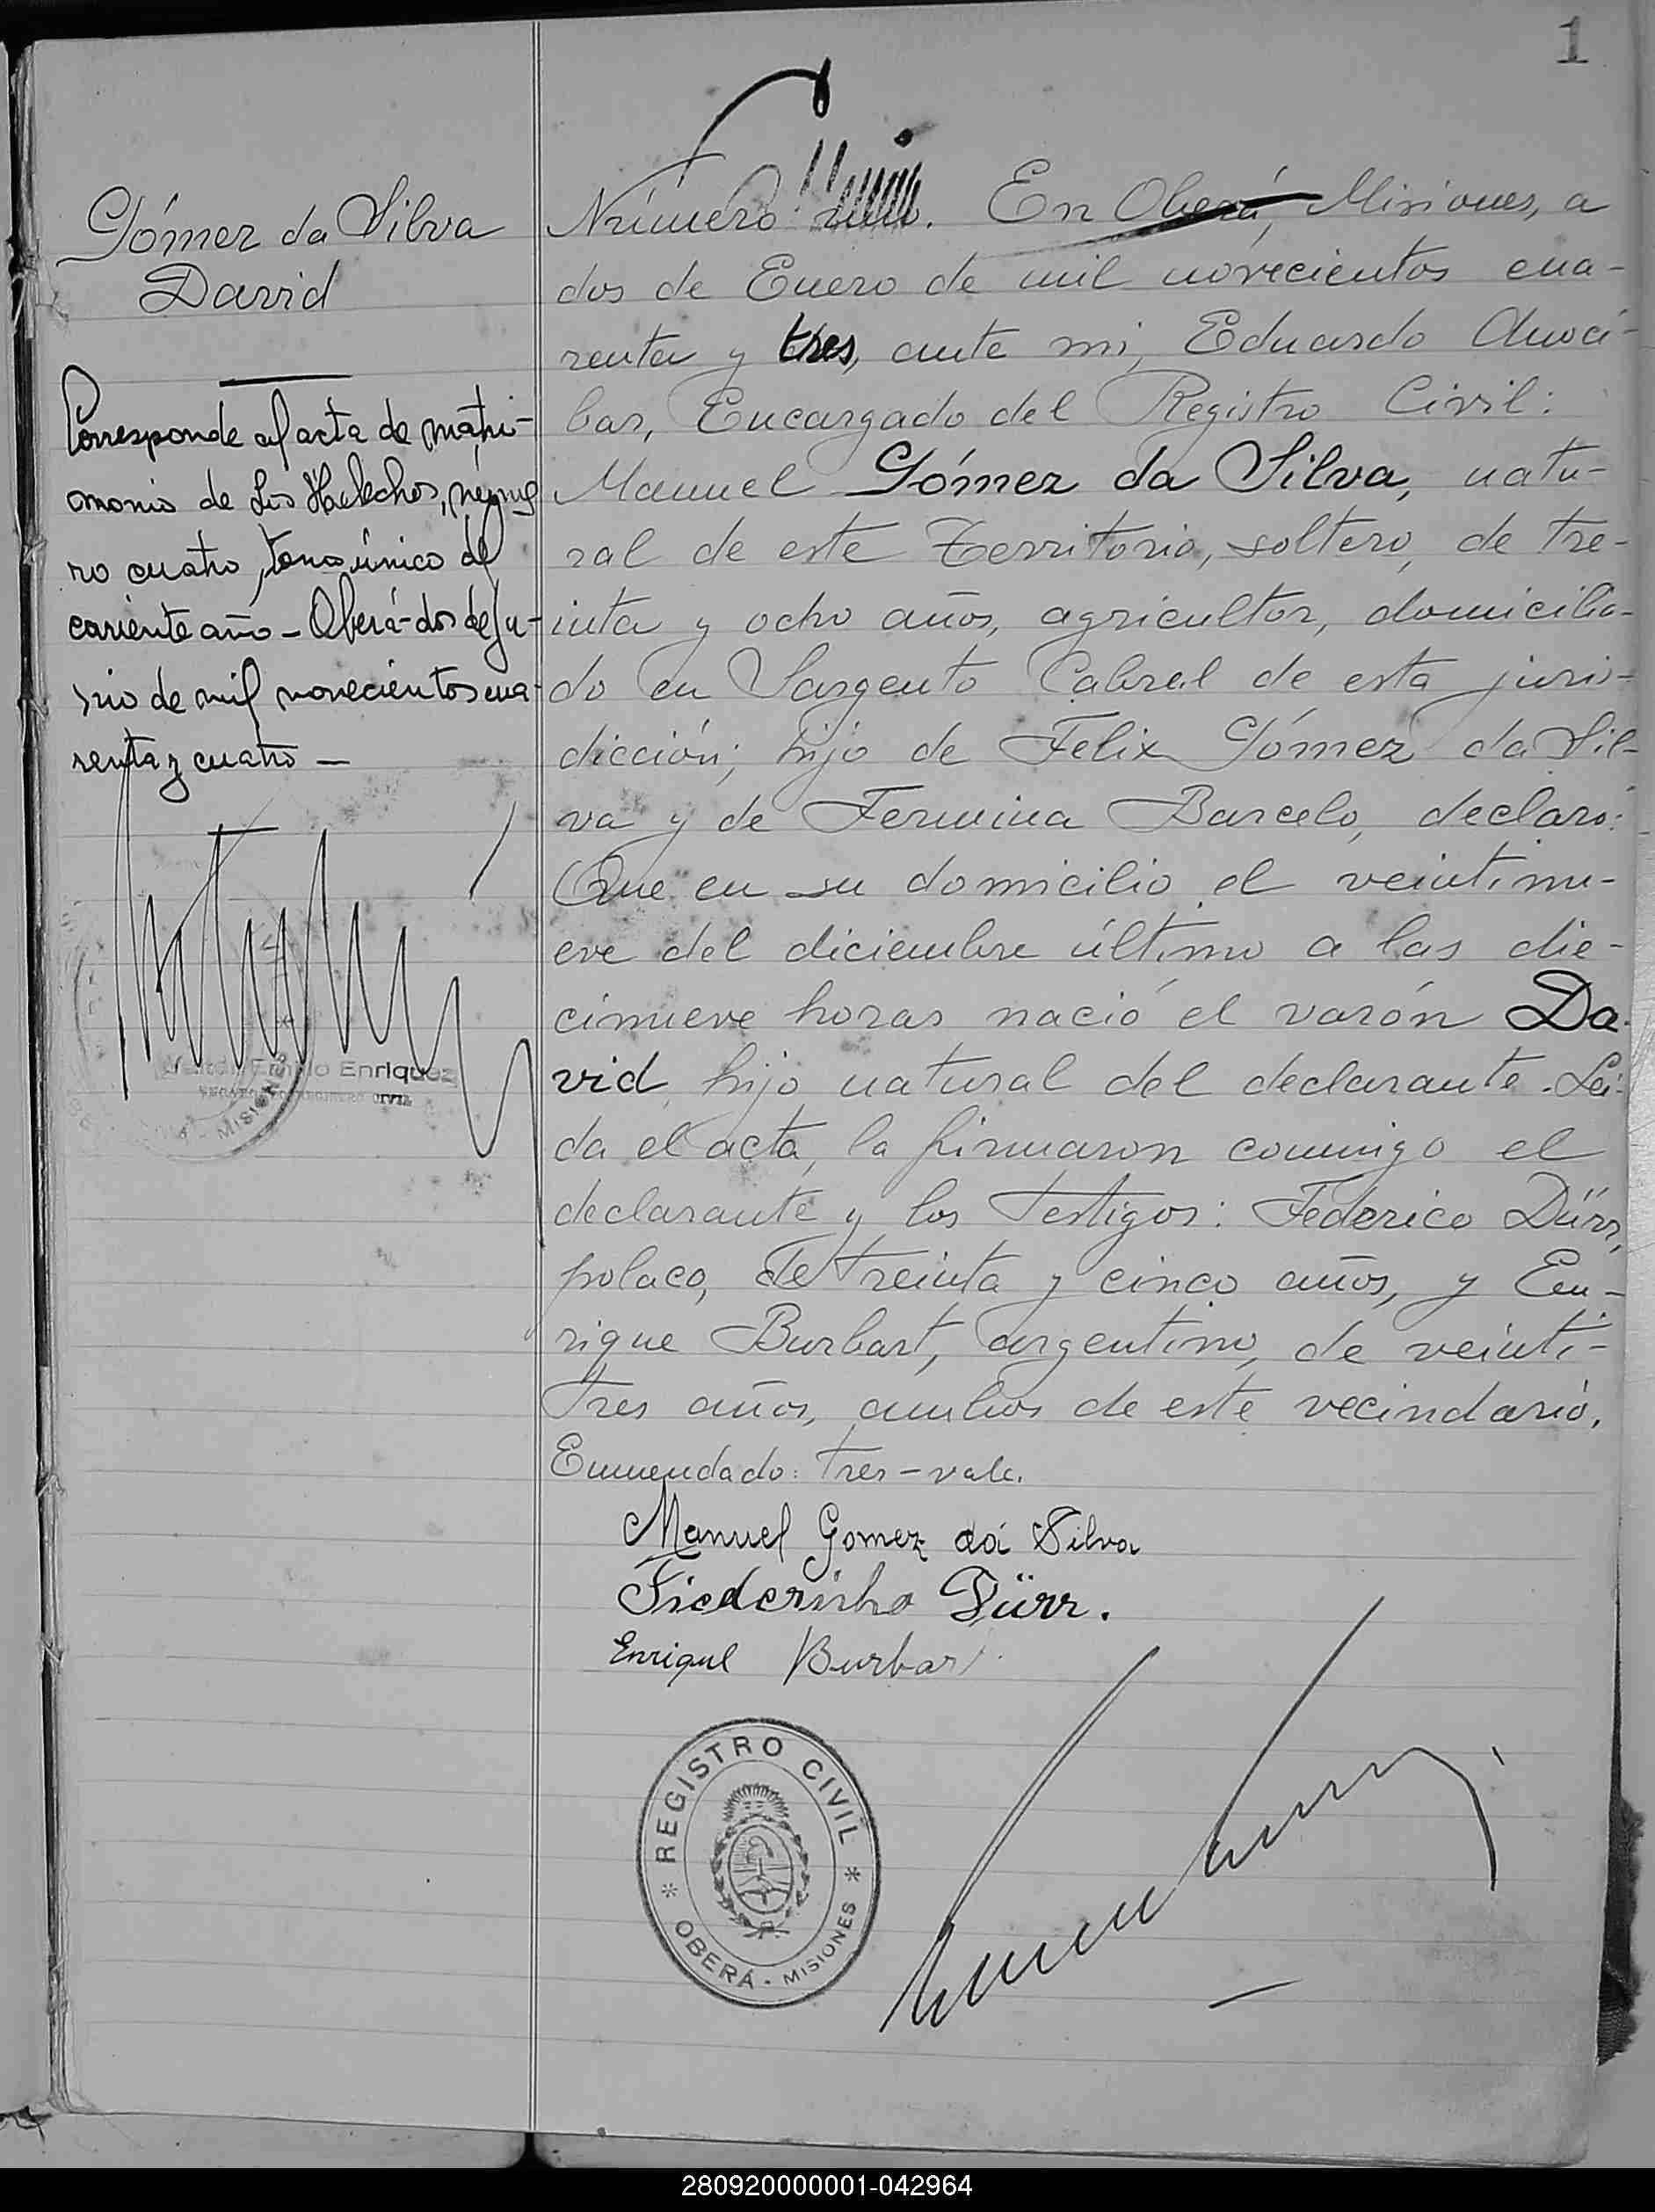 1
Gómez da Silva
David
Corresponde al acta de matri-
monio de Los Helechos, núme
ro cuatro, tomo único del
corriente año - Oberá - dos de Ju-
nio de mil novecientos cua-
renta y cuatro -
Emilio Enriquez
REGISTRO CIVIL
MISIONES
Número uno. En Oberá, Misiones, a
dos de Enero de mil novecientos cua-
renta y tres, ante mi, Eduardo Anocí-
bar, Encargado del Registro Civil:
Manuel Gómez da Silva, natu-
ral de este Territorio, soltero, de tre-
inta y ocho años, agricultor, domicilia-
do en Sargento Cabral de esta juris-
dicción; hijo de Felix Gómez da Sil-
va y de Fermina Barcelo, declaró:
Que en su domicilio el veintinu-
eve del diciembre último a las die-
cinueve horas nació el varón Da-
vid, hijo natural del declarante. Leí-
da el acta, la firmaron conmigo el
declarante y los testigos: Federico Dürr,
polaco, de treinta y cinco años, y En-
rique Burbart, argentino, de veinti-
tres años, ambos de este vecindario.
Enmendado: tres - vale.
Manuel Gomez da Silva
Dürr.
Enrique Burbart
REGISTRO CIVIL
OBERÁ - MISIONES
280920000001-042964